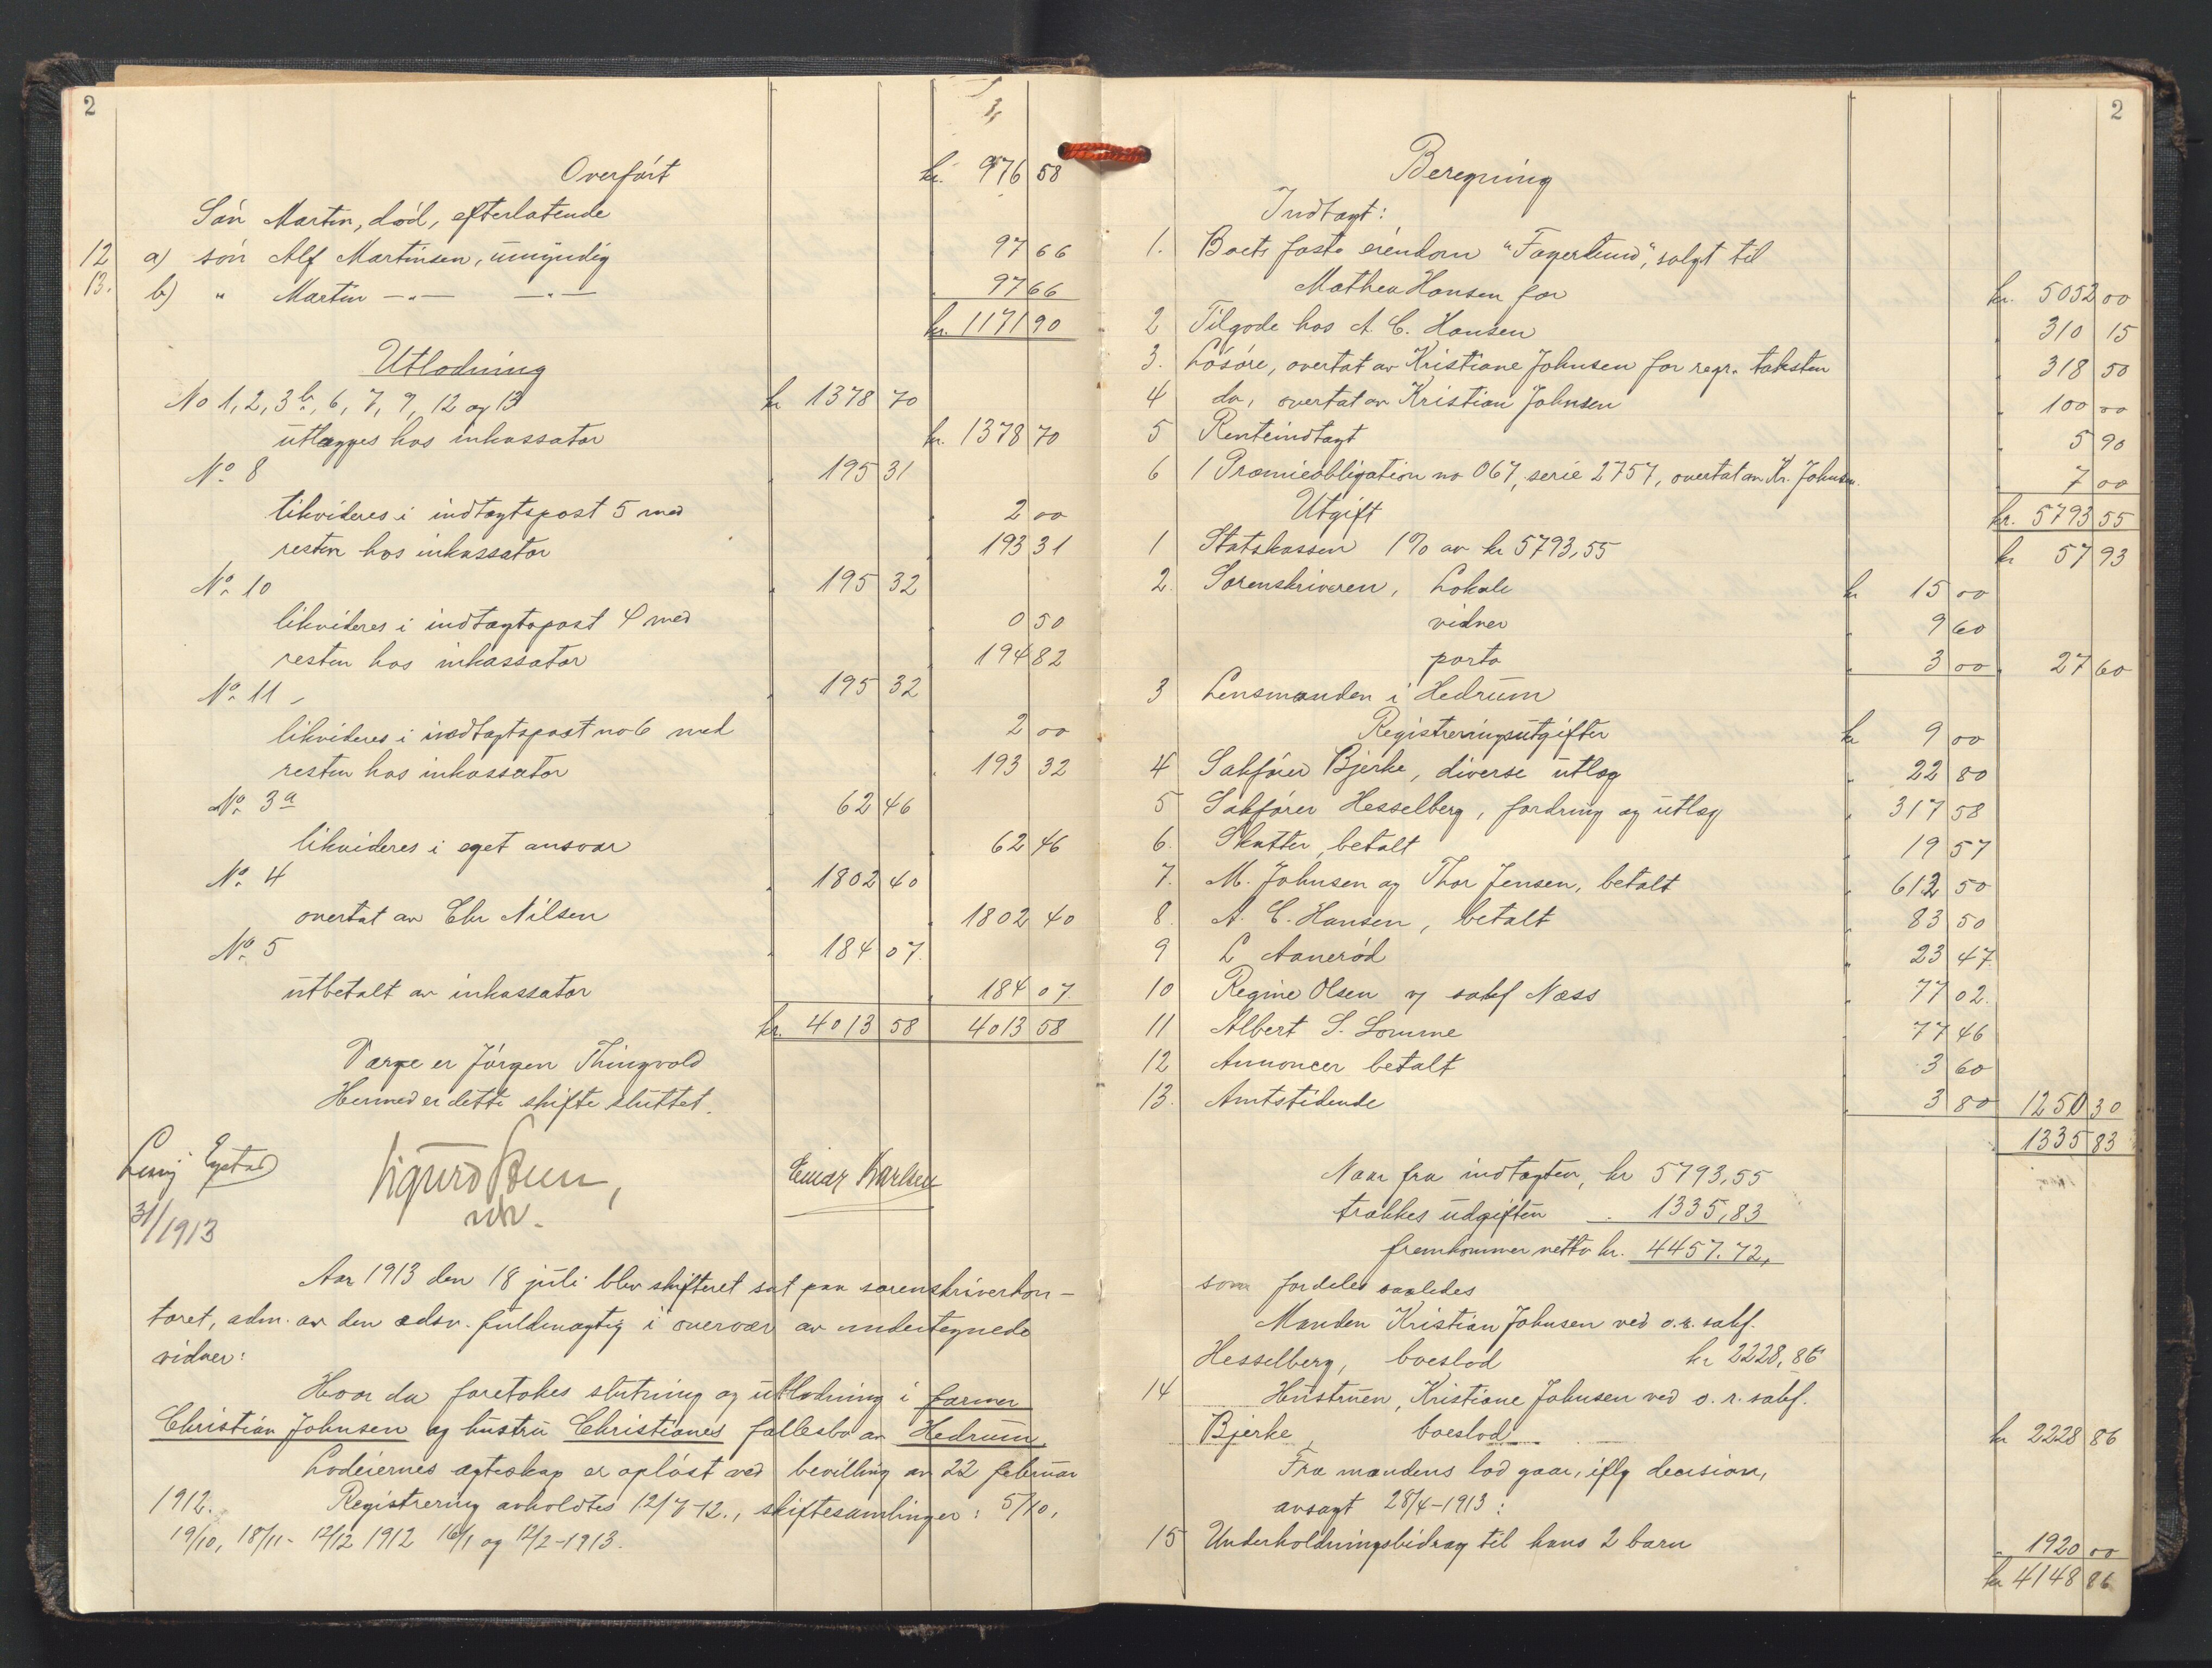 2
Overført kr. 976 58
Søn Martin, død, efterlatende
12 a) søn Alf Martinsen, umyndig " 97 66
13. b) " Martin —"— —"— " 97 66
kr. 1171 90
Utlodning
No 1, 2, 3b, 6, 7, 9, 12 og 13 kr 1378 70
utlægges hos inkassator kr. 1378 70
No. 8 " 195 31
likvideres i indtægtspost 5 med " 2 00
resten hos inkassator " 193 31
No. 10 " 195 32
likvideres i indtægtspost 4 med " 0 50
resten hos inkassator " 194 82
No. 11 – " 195 32
likvideres i indtægtspost no 6 med " 2 00
resten hos inkassator " 193 32
No. 3a " 62 46
likvideres i eget ansvar " 62 46
No. 4 " 1802 40
overtat av Chr Nilsen " 1802 40
No. 5 " 184 07.
utbetalt av inkassator " 184 07.
kr. 4013 58 4013 58
Værge er Jørgen Thingvold
Hermed er dette skifte sluttet.
Sigurd
Einar Karlsen
31/1913
Aar 1913 den 18 juli blev skifteret sat paa sorenskriverkon-
toret, adm. av den edsv. fuldmægtig i overvær av undertegnede
vidner:
Hvor da foretokes slutning og utlodning i farmer
Christian Johnsen og hustru Christianes fællesbo av Hedrum.
Lodeiernes ægteskap er opløst ved bevilling av 22 februar
1912. Registrering avholdtes 12/7-12., skiftesamlinger: 5/10,
19/10, 18/11 - 12/12 1912 16/1 og 12/2-1913.
2
Beregning
Indtægt:
1. Boets faste eiendom "Fagerlund", solgt til
Mathea Hansen for kr. 5052 00
2 Tilgode hos A. C. Hansen " 310 15
3. Løsøre, overtat av Kristiane Johnsen for regr. taksten " 318 50
4 do, overtat av Kristian Johnsen " 100 00
5 Renteindtægt " 5 90
6 1 Præmieobligation no 067, serie 2757, overtat av Kr. Johnsen. " 7 00
Utgift kr. 5793 55
1 Statskassen 1% av kr 5793,55 kr 57 93
2. Sorenskriveren, Lokale kr 15 00
vidner " 9 60
porto " 3 00 " 27 60
3 Lensmanden i Hedrum
Registreringsutgifter kr 9 00
4 Sakfører Bjerke, diverse utlæg " 22 80
5 Sakfører Hesselberg, fordring og utlæg " 317 58
6. Skatter, betalt " 19 57
7. M. Johnsen og Thor Jensen, betalt " 612 50
8. A. C. Hansen, betalt " 83 50
9 L Aanerød " 23 47.
10 Regine Olsen v/ sakf Næss " 77 02.
11 Albert S. Lomme " 77 46
12 Annoncer betalt " 3 60
13. Amtstidende " 3 80 1250 30
" 1335 83
Naar fra indtægten, kr 5793,55
trækkes udgiften " 1335,83
fremkommer netto kr. 4457.72,
som fordeles saaledes
Manden Kristian Johnsen ved o.r. sakf.
Hesselberg, boeslod kr 2228,86
14 Hustruen, Kristiane Johnsen ved o. r. sakf.
Bjerke, boeslod kr 2228 86
Fra mandens lod gaar, iflg decision,
avsagt 28/4-1913:
15 Underholdningsbidrag til hans 2 barn " 1920 00
kr 4148 86